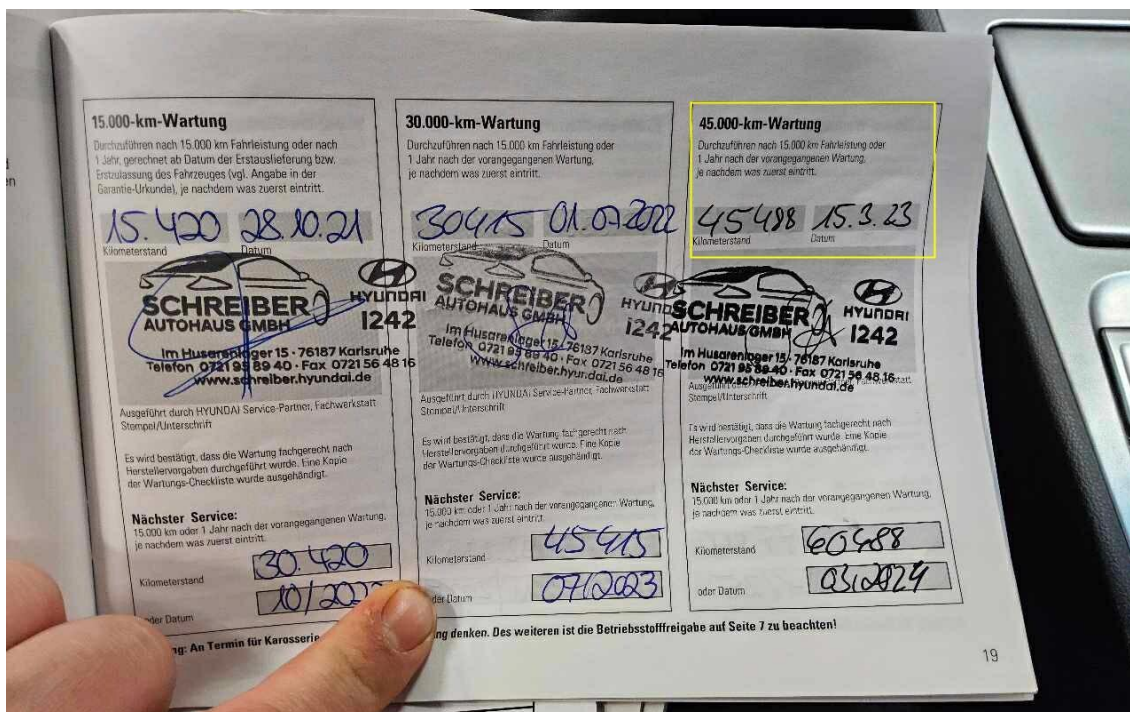 15.000-km-Wartung
Durchzuführen nach 15.000 km Fahrleistung oder nach
1 Jahr, gerechnet ab Datum der Erstauslieferung bzw.
Erstzulassung des Fahrzeuges (vgl. Angabe in der
Garantie-Urkunde), je nachdem was zuerst eintritt.
15.420 28.10.21
Kilometerstand Datum
SCHREIBER
AUTOHAUS GMBH
HYUNDAI
I242
Im Husarenlager 15 · 76187 Karlsruhe
Telefon 0721 95 89 40 · Fax 0721 56 48 16
www.schreiber.hyundai.de
Ausgeführt durch HYUNDAI Service-Partner, Fachwerkstatt
Stempel/Unterschrift
Es wird bestätigt, dass die Wartung fachgerecht nach
Herstellervorgaben durchgeführt wurde. Eine Kopie
der Wartungs-Checkliste wurde ausgehändigt.
Nächster Service:
15.000 km oder 1 Jahr nach der vorangegangenen Wartung,
je nachdem was zuerst eintritt.
Kilometerstand 30.420
oder Datum 10/2022
30.000-km-Wartung
Durchzuführen nach 15.000 km Fahrleistung oder
1 Jahr nach der vorangegangenen Wartung,
je nachdem was zuerst eintritt.
30415 01.07.2022
Kilometerstand Datum
SCHREIBER
AUTOHAUS GMBH
HYUNDAI
I242
Im Husarenlager 15 · 76187 Karlsruhe
Telefon 0721 95 89 40 · Fax 0721 56 48 16
www.schreiber.hyundai.de
Ausgeführt durch HYUNDAI Service-Partner, Fachwerkstatt
Stempel/Unterschrift
Es wird bestätigt, dass die Wartung fachgerecht nach
Herstellervorgaben durchgeführt wurde. Eine Kopie
der Wartungs-Checkliste wurde ausgehändigt.
Nächster Service:
15.000 km oder 1 Jahr nach der vorangegangenen Wartung,
je nachdem was zuerst eintritt.
Kilometerstand 45415
oder Datum 07/2023
45.000-km-Wartung
Durchzuführen nach 15.000 km Fahrleistung oder
1 Jahr nach der vorangegangenen Wartung,
je nachdem was zuerst eintritt.
45488 15.3.23
Kilometerstand Datum
SCHREIBER
AUTOHAUS GMBH
HYUNDAI
I242
Im Husarenlager 15 · 76187 Karlsruhe
Telefon 0721 95 89 40 · Fax 0721 56 48 16
www.schreiber.hyundai.de
Ausgeführt durch HYUNDAI Service-Partner, Fachwerkstatt
Stempel/Unterschrift
Es wird bestätigt, dass die Wartung fachgerecht nach
Herstellervorgaben durchgeführt wurde. Eine Kopie
der Wartungs-Checkliste wurde ausgehändigt.
Nächster Service:
15.000 km oder 1 Jahr nach der vorangegangenen Wartung,
je nachdem was zuerst eintritt.
Kilometerstand 60488
oder Datum 03/2024
An Termin für Karosserie denken. Des weiteren ist die Betriebsstofffreigabe auf Seite 7 zu beachten!
19